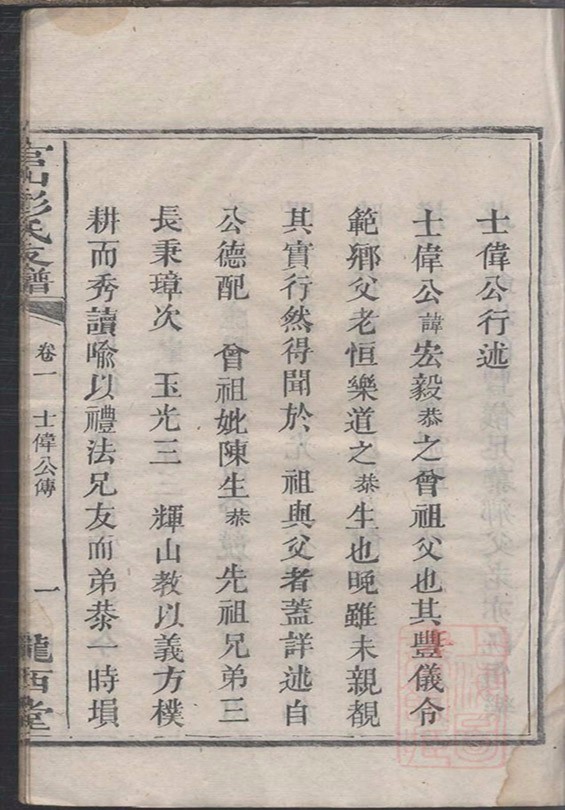 士偉公行述
士偉公諱宏毅恭之曾祖父也其豐儀令
範鄉父老恒樂道之恭生也晚雖未親覩
其實行然得聞於 祖與父者蓋詳述自
公德配 曾祖妣陳生恭 先祖兄弟三
長秉璋次 玉光三 輝山教以義方樸
耕而秀讀喩以禮法兄友而弟恭一時塤
彭氏支譜
卷一 士偉公傳 一
隴西堂